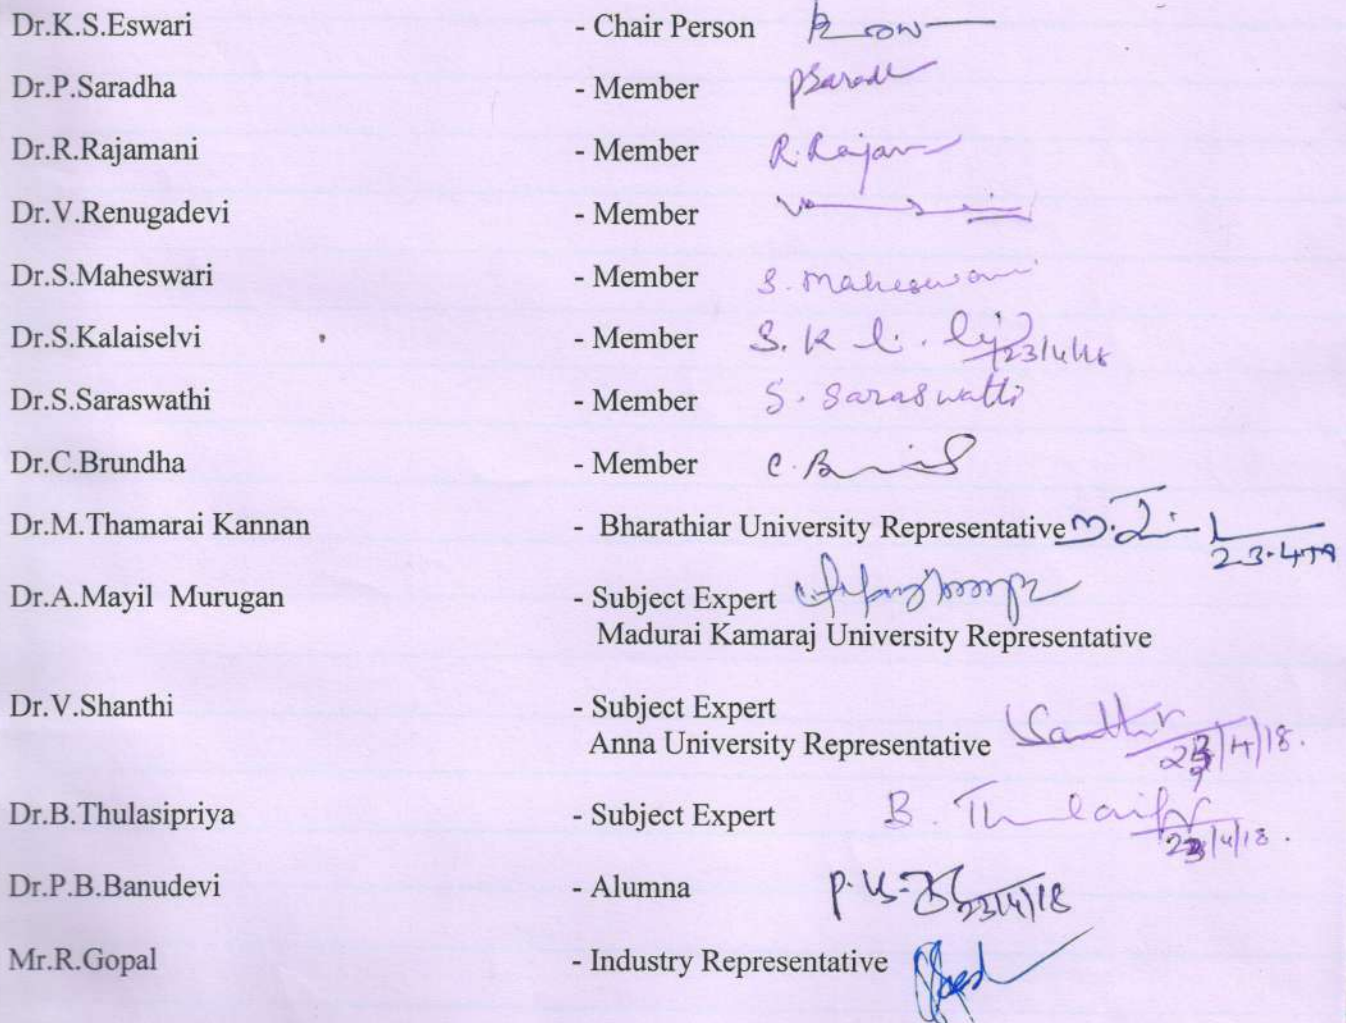 Dr.K.S.Eswari - Chair Person
Dr.P.Saradha - Member PSaradh
Dr.R.Rajamani - Member R.Rajam
Dr.V.Renugadevi - Member
Dr.S.Maheswari - Member S. Maheswari
Dr.S.Kalaiselvi - Member S. K 23/4/18
Dr.S.Saraswathi - Member S. Saraswathi
Dr.C.Brundha - Member C. B
Dr.M.Thamarai Kannan - Bharathiar University Representative
Dr.A.Mayil Murugan - Subject Expert
Madurai Kamaraj University Representative
Dr.V.Shanthi - Subject Expert
Anna University Representative 23/4/18.
Dr.B.Thulasipriya - Subject Expert B. 23/4/18.
Dr.P.B.Banudevi - Alumna 23/4/18
Mr.R.Gopal - Industry Representative